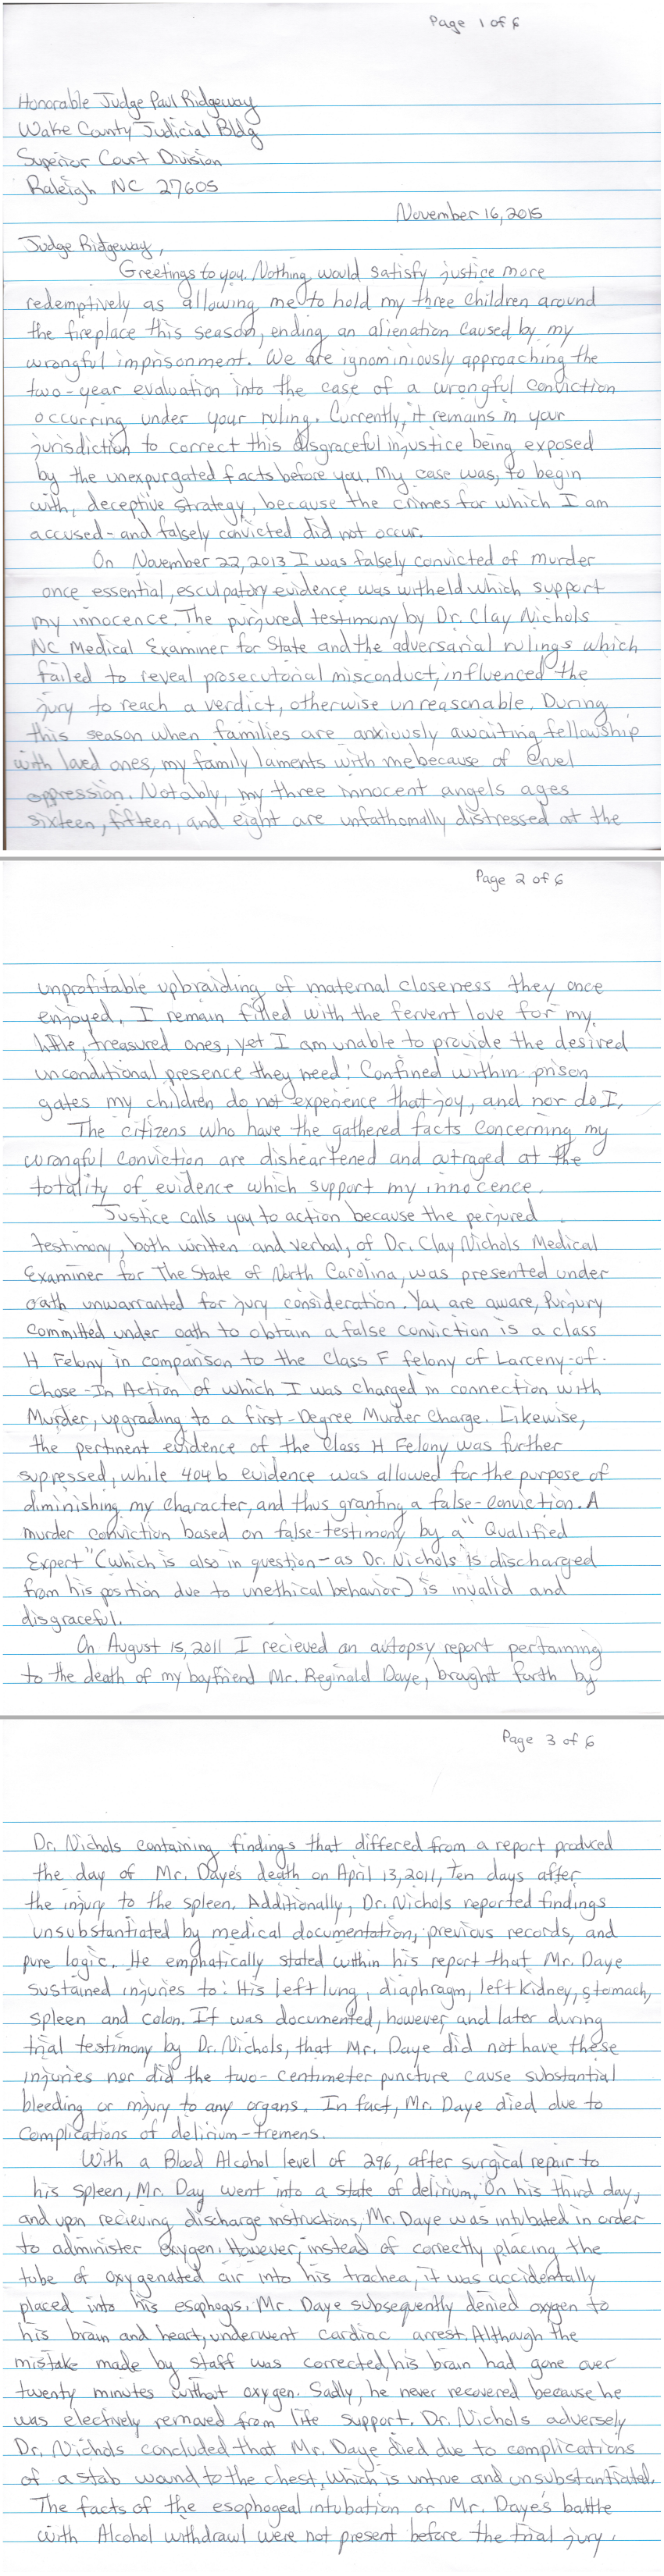 Page 1 of 6
Honorable Judge Paul Ridgeway
Wake County Judicial Bldg
Superior Court Division
Raleigh NC 27605
November 16, 2015
Judge Ridgeway,
Greetings to you. Nothing would satisfy justice more
redemptively as allowing me to hold my three children around
the fireplace this season, ending an alienation caused by my
wrongful imprisonment. We are ignominiously approaching the
two-year evaluation into the case of a wrongful conviction
occurring under your ruling. Currently, it remains in your
jurisdiction to correct this disgraceful injustice being exposed
by the unexpurgated facts before you. My case was, to begin
with, deceptive strategy, because the crimes for which I am
accused - and falsely convicted did not occur.
On November 22, 2013 I was falsely convicted of murder
once essential, esculpatory evidence was witheld which support
my innocence. The purjured testimony by Dr. Clay Nichols
NC Medical Examiner for State and the adversarial rulings which
failed to reveal prosecutorial misconduct, influenced the
jury to reach a verdict, otherwise unreasonable. During
this season when families are anxiously awaiting fellowship
with loved ones, my family laments with me because of cruel
oppression. Notably, my three innocent angels ages
sixteen, fifteen, and eight are unfathomally distressed at the
Page 2 of 6
unprofitable upbraiding of maternal closeness they once
enjoyed. I remain filled with the fervent love for my
little, treasured ones, yet I am unable to provide the desired
unconditional presence they need! Confined within prison
gates my children do not experience that joy, and nor do I.
The citizens who have the gathered facts concerning my
wrongful conviction are disheartened and outraged at the
totality of evidence which support my innocence.
Justice calls you to action because the perjured
testimony, both written and verbal, of Dr. Clay Nichols Medical
Examiner for The State of North Carolina, was presented under
oath unwarranted for jury consideration. You are aware, Purjury
committed under oath to obtain a false conviction is a class
H Felony in comparison to the Class F felony of Larceny-of-
Chose-In Action of which I was charged in connection with
Murder, upgrading to a first-Degree Murder Charge. Likewise,
the pertinent evidence of the Class H Felony was further
suppressed, while 404b evidence was allowed for the purpose of
diminishing my character, and thus granting a false-conviction. A
murder conviction based on false-testimony by a "Qualified
Expert" (which is also in question - as Dr. Nichols is discharged
from his position due to unethical behavior) is invalid and
disgraceful.
On August 15, 2011 I recieved an autopsy report pertaining
to the death of my boyfriend Mr. Reginald Daye, brought forth by
Page 3 of 6
Dr. Nichols containing findings that differed from a report produced
the day of Mr. Daye's death on April 13, 2011, Ten days after
the injury to the spleen. Additionally, Dr. Nichols reported findings
unsubstantiated by medical documentation, previous records, and
pure logic. He emphatically stated within his report that Mr. Daye
sustained injuries to: His left lung, diaphragm, left kidney, stomach,
spleen and colon. It was documented, however, and later during
trial testimony by Dr. Nichols, that Mr. Daye did not have these
injuries nor did the two-centimeter puncture cause substantial
bleeding or injury to any organs. In fact, Mr. Daye died due to
complications of delirium-tremens.
With a Blood Alcohol level of 296, after surgical repair to
his spleen, Mr. Day went into a state of delirium. On his third day,
and upon recieving discharge instructions, Mr. Daye was intubated in order
to administer oxygen. However, instead of correctly placing the
tube of oxygenated air into his trachea, it was accidentally
placed into his esophogus. Mr. Daye subsequently denied oxygen to
his brain and heart, underwent cardiac arrest. Although the
mistake made by staff was corrected, his brain had gone over
twenty minutes without oxygen. Sadly, he never recovered because he
was electively removed from life support. Dr. Nichols adversely
Dr. Nichols concluded that Mr. Daye died due to complications
of a stab wound to the chest, which is untrue and unsubstantiated.
The facts of the esophogeal intubation or Mr. Daye's battle
with Alcohol withdrawl were not present before the trial jury.